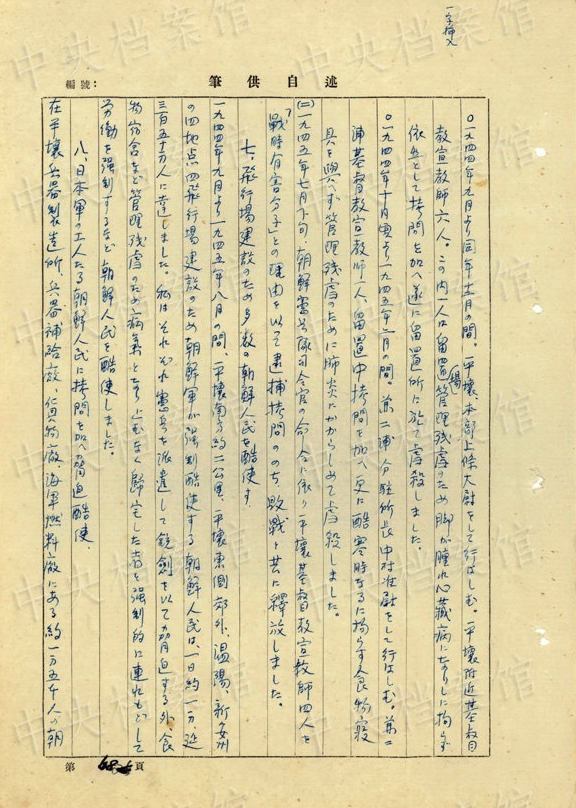 一字挿入
述自供筆
編號：
○一九四四年九月より同年十二月の間。平壌、本部上條大尉をして行はしむ。平壌附近基督
教宣教師六人。この内一人は留置場管理残虐のため脚が腫れ心臓病になりしに拘らず
依然として拷問を加へ遂に留置所に於て虐殺しました。
○一九四四年十月頃より一九四五年二月の間。兼二浦分駐所長中村准尉をして行はしむ。兼二
浦基督教宣教師一人、留置中拷問を加へ、更に酷寒時なるに拘らず食物寝
具を與へず管理残虐のために肺炎にかからしめて虐殺しました。
(二)一九四五年七月下旬、朝鮮憲兵隊司令官の命令に依り平壌基督教宣教師四人を
「戦時有害分子」との理由を以て逮捕拷問ののち敗戦と共に釋放しました。
七、飛行場建設のため多数の朝鮮人民を酷使す
一九四四年九月より一九四五年八月の間、平壌南方約二公里、平壌東側郊外、温陽、新安州
の四地点の飛行場建設のため朝鮮軍が強制酷使する朝鮮人民は、一日約一万、延
三百五十万人に達しました。私はそれぞれ憲兵を派遣して銃剣を以て脅迫する外、食
物宿舎など管理残虐のため病氣となり止むなく歸宅した者を強制的に連れもどして
労働を強制するなど朝鮮人民を酷使しました。
八、日本軍の工人たる朝鮮人民に拷問を加へ脅迫酷使、
在平壌兵器製造所、兵器補給廠、貨物廠、海軍燃料廠にある約一万五千人の朝
第 頁
中央档案馆